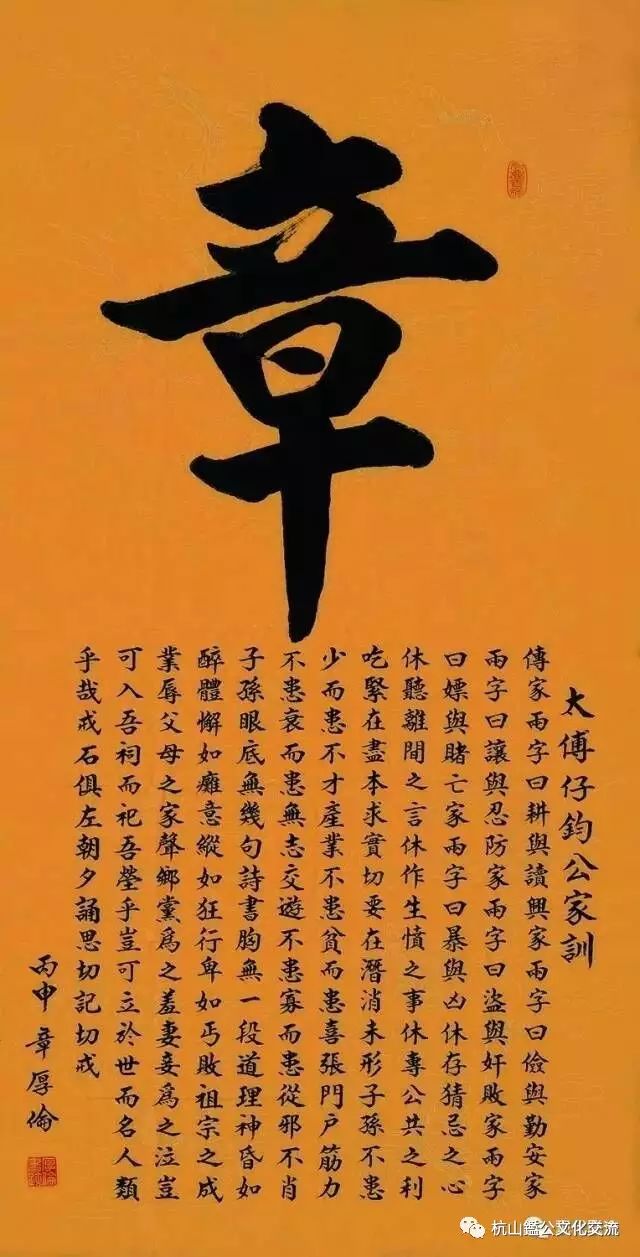 章
太傅仔鈞公家訓
傳家兩字曰耕與讀興家兩字曰儉與勤安家
兩字曰讓與忍防家兩字曰盜與奸敗家兩字
曰嫖與賭亡家兩字曰暴與凶休存猜忌之心
休聽離間之言休作生憤之事休專公共之利
吃緊在盡本求實切要在潛消未形子孫不患
少而患不才產業不患貧而患喜張門户筋力
不患衰而患無志交遊不患寡而患從邪不肖
子孫眼底無幾句詩書胸無一段道理神昏如
醉體懈如癱意縱如狂行卑如丐敗祖宗之成
業辱父母之家聲鄉黨爲之羞妻妾爲之泣豈
可入吾祠而祀吾塋乎豈可立於世而名人類
乎哉戒石俱左朝夕誦思切記切戒
丙申 章厚倫
杭山鑑公文化交流